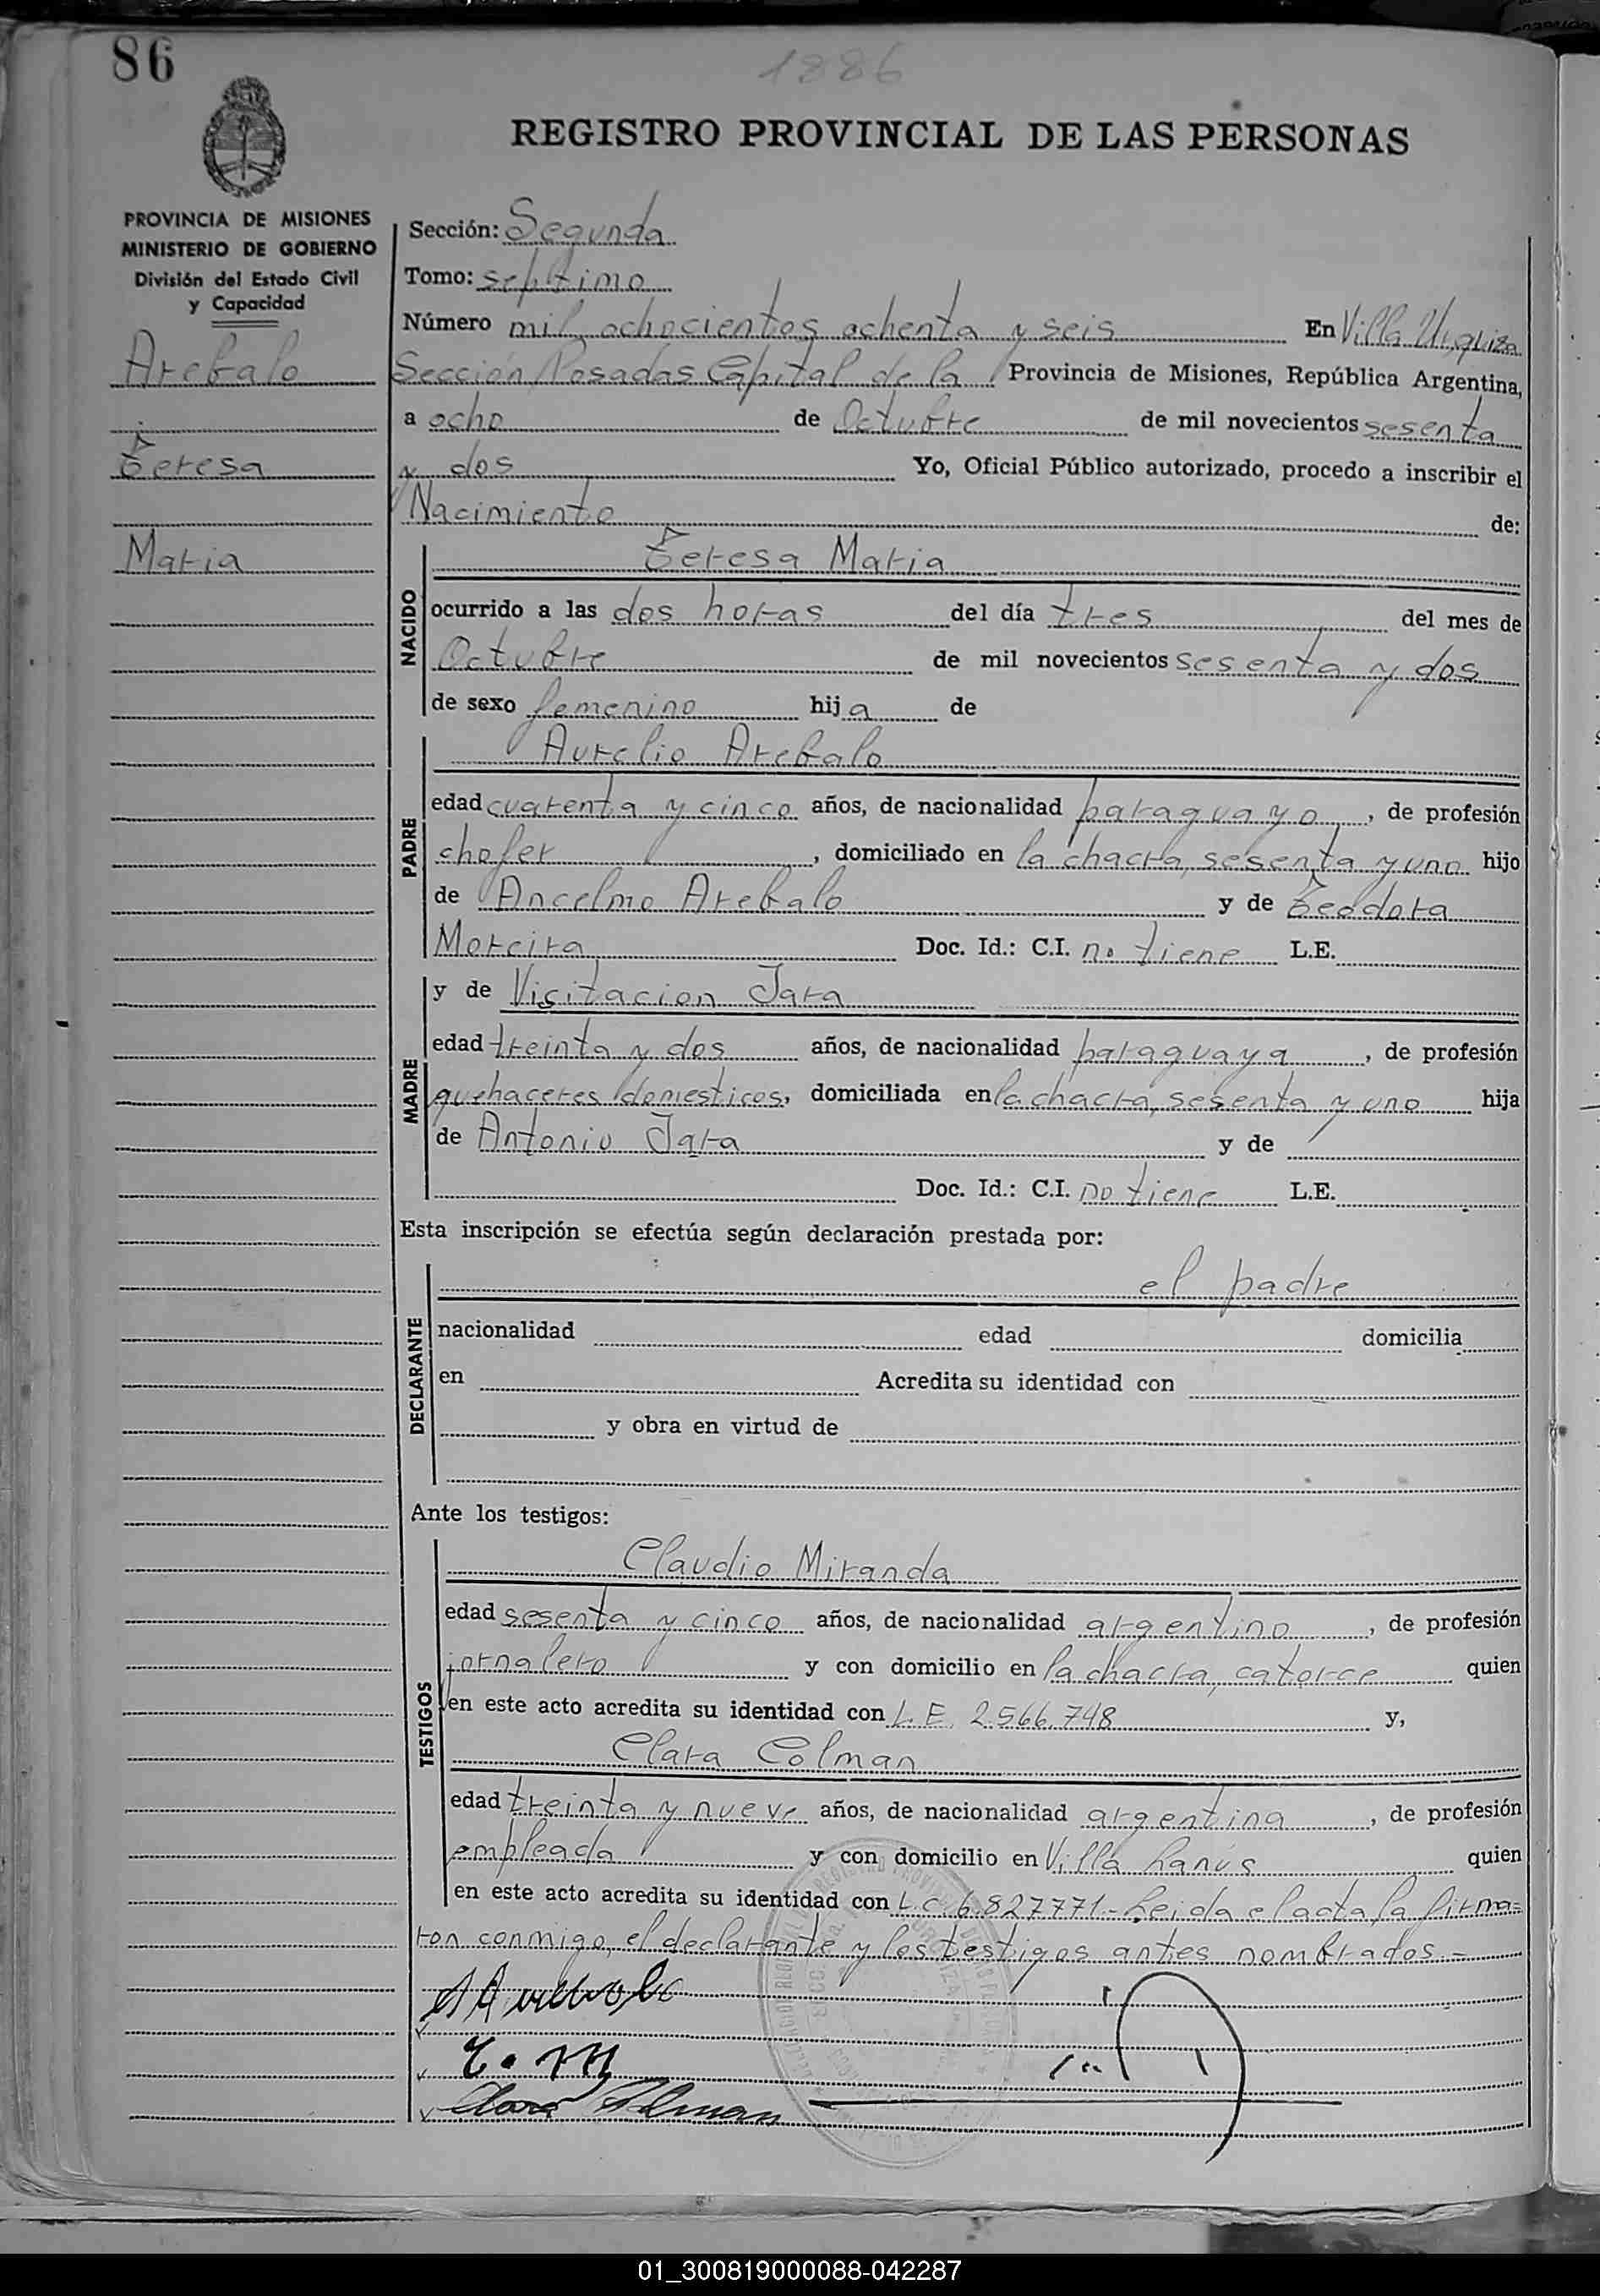 86
1886
REGISTRO PROVINCIAL DE LAS PERSONAS
PROVINCIA DE MISIONES
MINISTERIO DE GOBIERNO
División del Estado Civil
y Capacidad
Arebalo
Teresa
Maria
Sección: Segunda
Tomo: septimo
Número mil ochocientos ochenta y seis En Villa Urquiza
Sección Posadas Capital de la Provincia de Misiones, República Argentina,
a ocho de Octubre de mil novecientos sesenta
y dos Yo, Oficial Público autorizado, procedo a inscribir el
Nacimiento de:
NACIDO
Teresa Maria
ocurrido a las dos horas del día tres del mes de
Octubre de mil novecientos sesenta y dos
de sexo femenino hija de
PADRE
Aurelio Arebalo
edad cuarenta y cinco años, de nacionalidad paraguayo, de profesión
chofer, domiciliado en la chacra, sesenta y uno hijo
de Ancelmo Arebalo y de Teodora
Moreira Doc. Id.: C.I. no tiene L.E.
MADRE
y de Visitacion Jara
edad treinta y dos años, de nacionalidad paraguaya, de profesión
quehaceres domesticos, domiciliada en la chacra, sesenta y uno hija
de Antonio Jara y de
Doc. Id.: C.I. no tiene L.E.
Esta inscripción se efectúa según declaración prestada por:
DECLARANTE
el padre
nacionalidad edad domicilia
en Acredita su identidad con
y obra en virtud de
Ante los testigos:
TESTIGOS
Claudio Miranda
edad sesenta y cinco años, de nacionalidad argentino, de profesión
jornalero y con domicilio en la chacra, catorce quien
en este acto acredita su identidad con L.E. 2.566.748 y,
Clara Colman
edad treinta y nueve años, de nacionalidad argentina, de profesión
empleada y con domicilio en Villa Lanús quien
en este acto acredita su identidad con L.C. 6.827771.- Leida el acta, la firma=
ron conmigo, el declarante y los testigos antes nombrados.=
Clara Colman
01_300819000088-042287